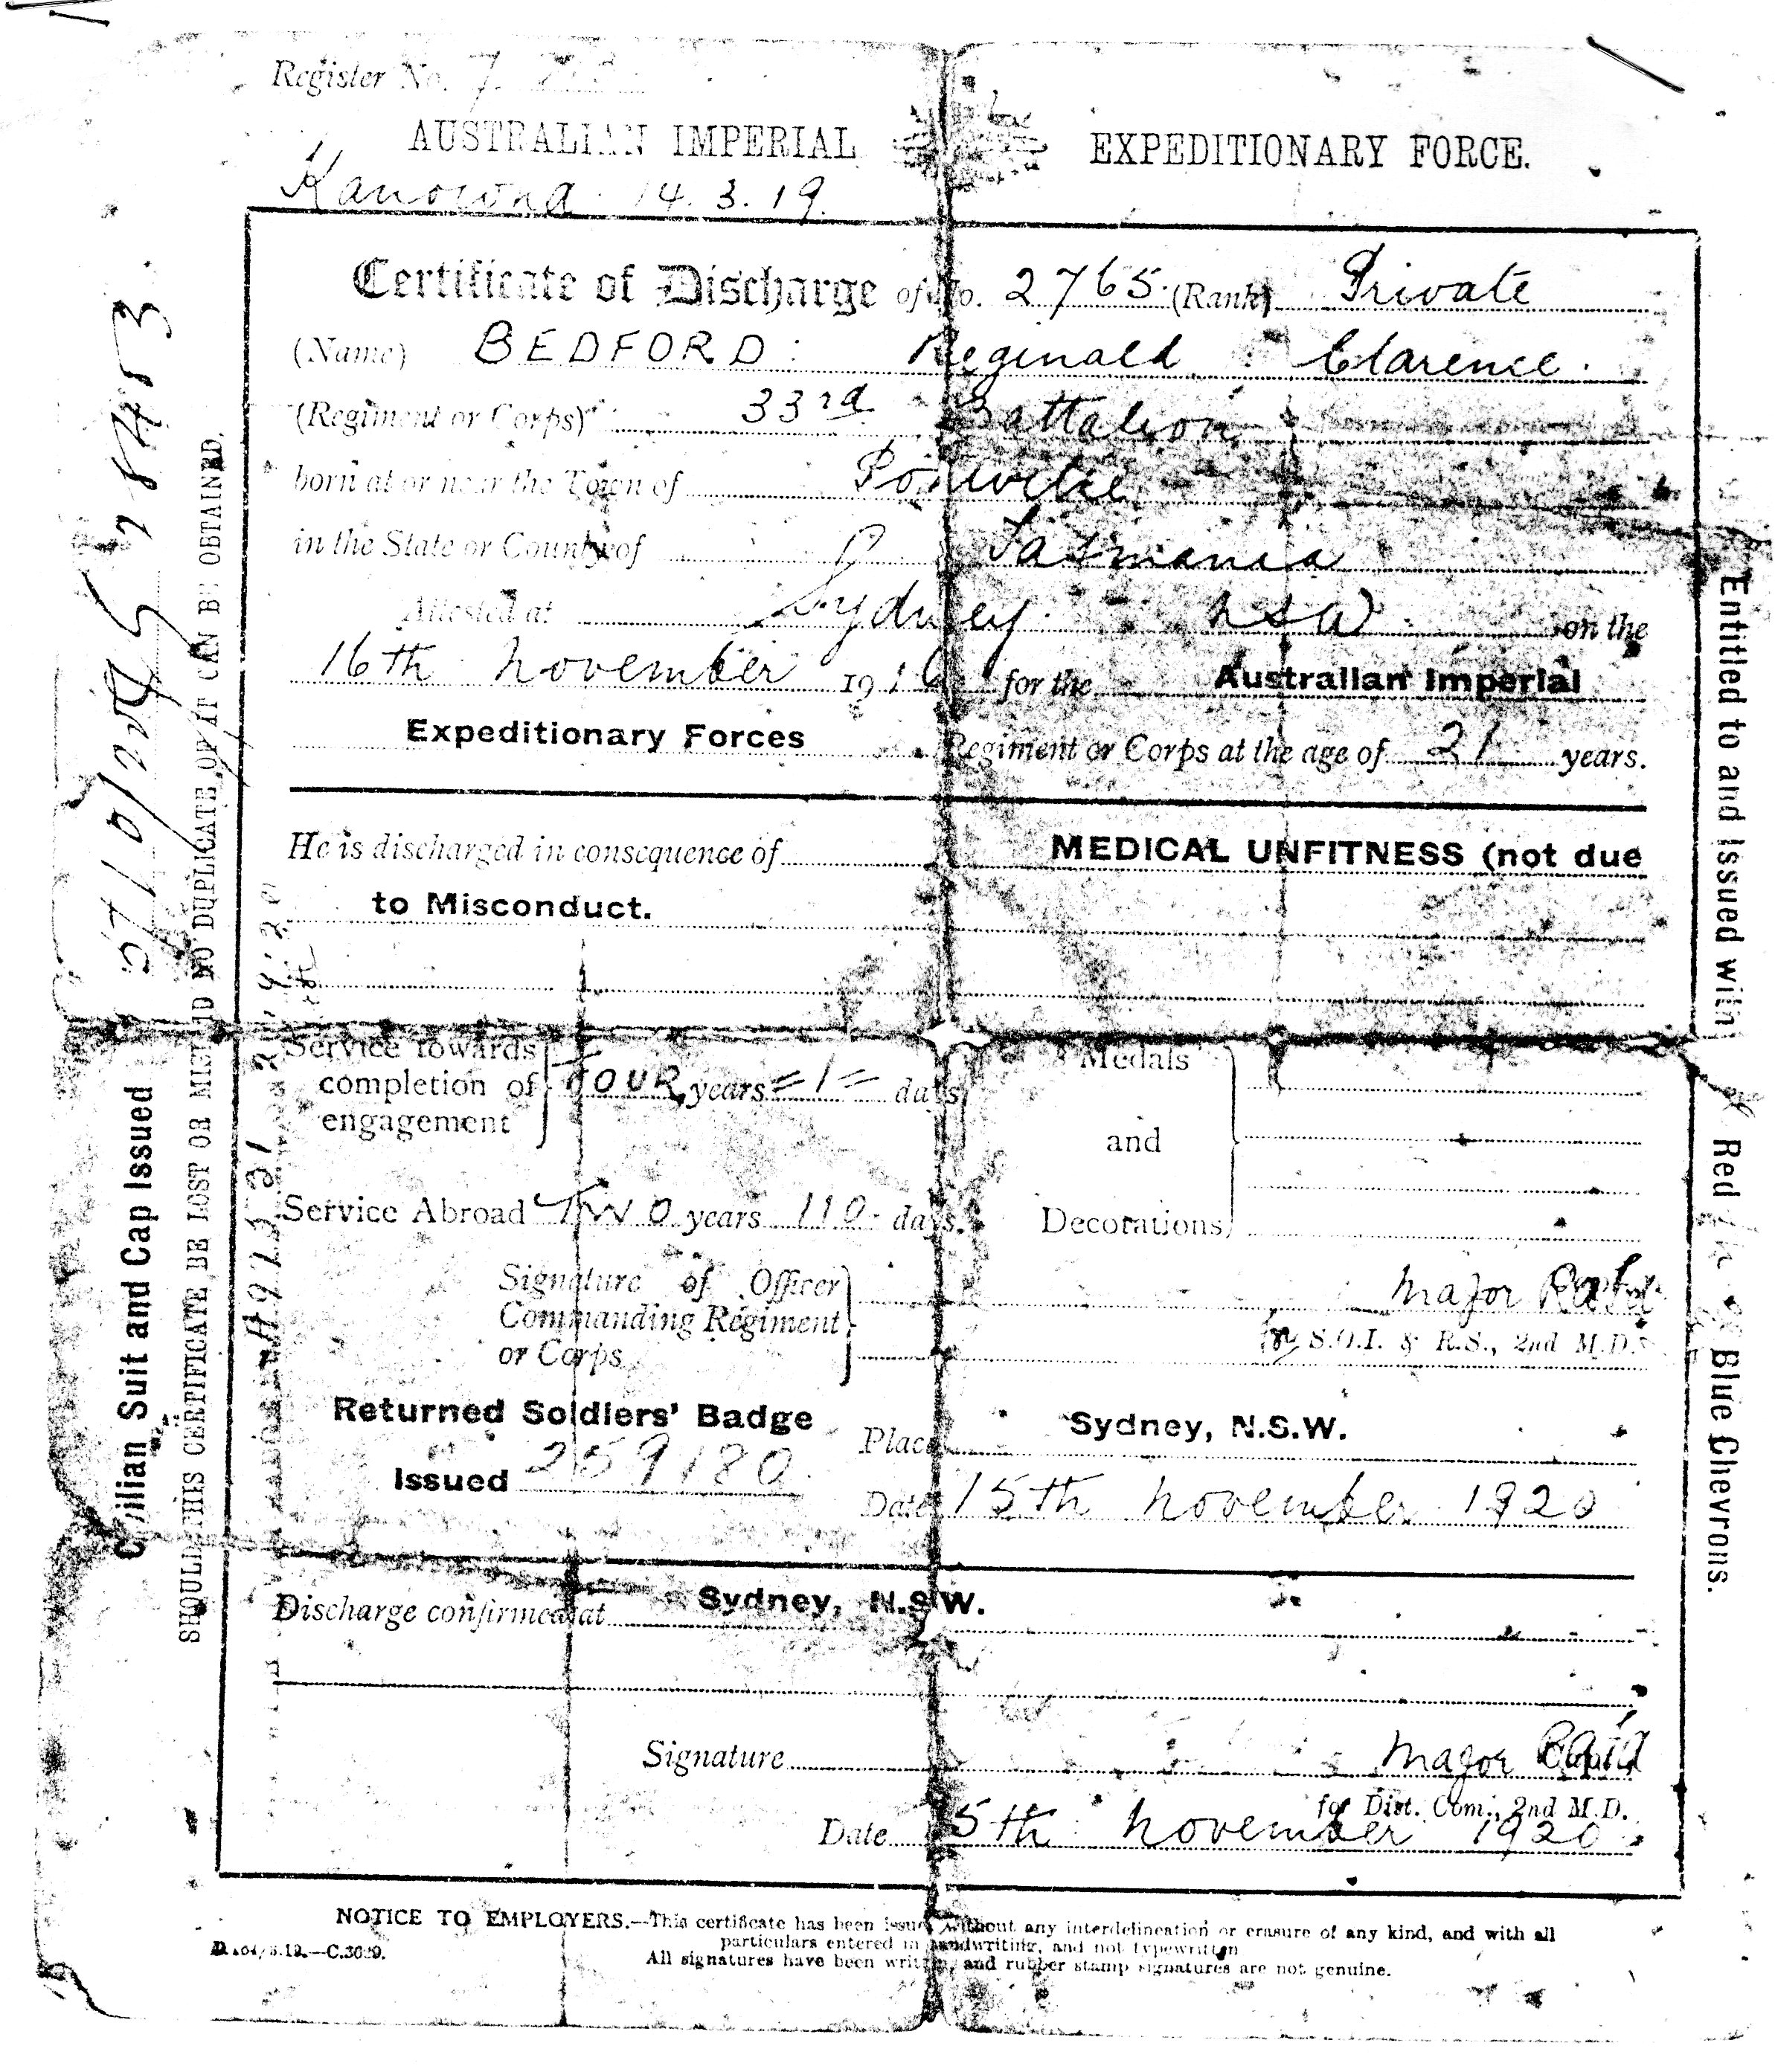 Register No. 7
AUSTRALIAN IMPERIAL EXPEDITIONARY FORCE.
Kanowna 14.3.19.
Certificate of Discharge of No. 2765. (Rank) Private
(Name) BEDFORD: Reginald Clarence.
(Regiment or Corps) 33rd Battalion
born at or near the Town of
in the State or County of Tasmania
Attested at Sydney NSW on the
16th November 1916 for the Australian Imperial
Expeditionary Forces Regiment or Corps at the age of 21 years.
He is discharged in consequence of MEDICAL UNFITNESS (not due
to Misconduct.
Service towards
completion of
engagement
FOUR years =1= days
Medals
and
Decorations
Service Abroad TWO years 110 days.
Signature of Officer
Commanding Regiment
or Corps
Major
for S.O.I. & R.S., 2nd M.D.
Returned Soldiers' Badge
Issued 259180
Place Sydney, N.S.W.
Date 15th November 1920
Discharge confirmed at Sydney, N.S.W.
Signature Major
for Dist. Com., 2nd M.D.
Date 15th November 1920
NOTICE TO EMPLOYERS.—This certificate has been issued without any interdelineation or erasure of any kind, and with all
particulars entered in handwriting, and not typewritten
All signatures have been written, and rubber stamp signatures are not genuine.
Civilian Suit and Cap Issued
SHOULD THIS CERTIFICATE BE LOST OR MISLAID NO DUPLICATE OF IT CAN BE OBTAINED.
Entitled to and Issued with Red Blue Chevrons.